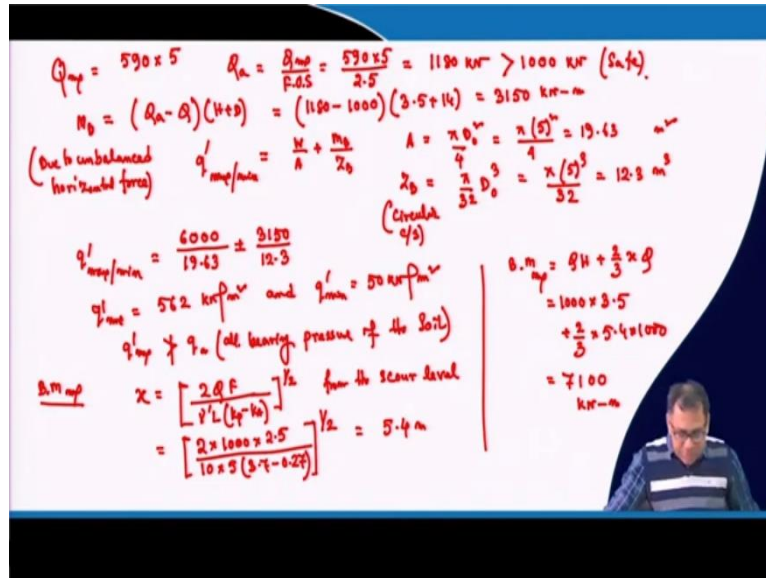 Qmp = 590 x 5 Qa = Qmp/F.O.S = 590x5/2.5 = 1180 kN > 1000 kN (Safe).
MB = (Qa - Q)(H+D) = (1180 - 1000)(3.5+14) = 3150 kN-m
(Due to unbalanced horizontal force) q'max/min = W/A + MB/ZB A = πD0²/4 = π(5)²/4 = 19.63 m²
ZB = π/32 D0³ = π(5)³/32 = 12.3 m³
(Circular c/s)
q'max/min = 6000/19.63 ± 3150/12.3
q'max = 562 kN/m² and q'min = 50 kN/m²
q'max ≯ qa (all. bearing pressure of the Soil)
B.M mp x = [2QF/γ'L(kp-ka)]^1/2 from the scour level
= [2 x 1000 x 2.5/10 x 5 (3.7 - 0.27)]^1/2 = 5.4 m
B.M mp = QH + 2/3 x Q
= 1000 x 3.5
+ 2/3 x 5.4 x 1000
= 7100
kN-m